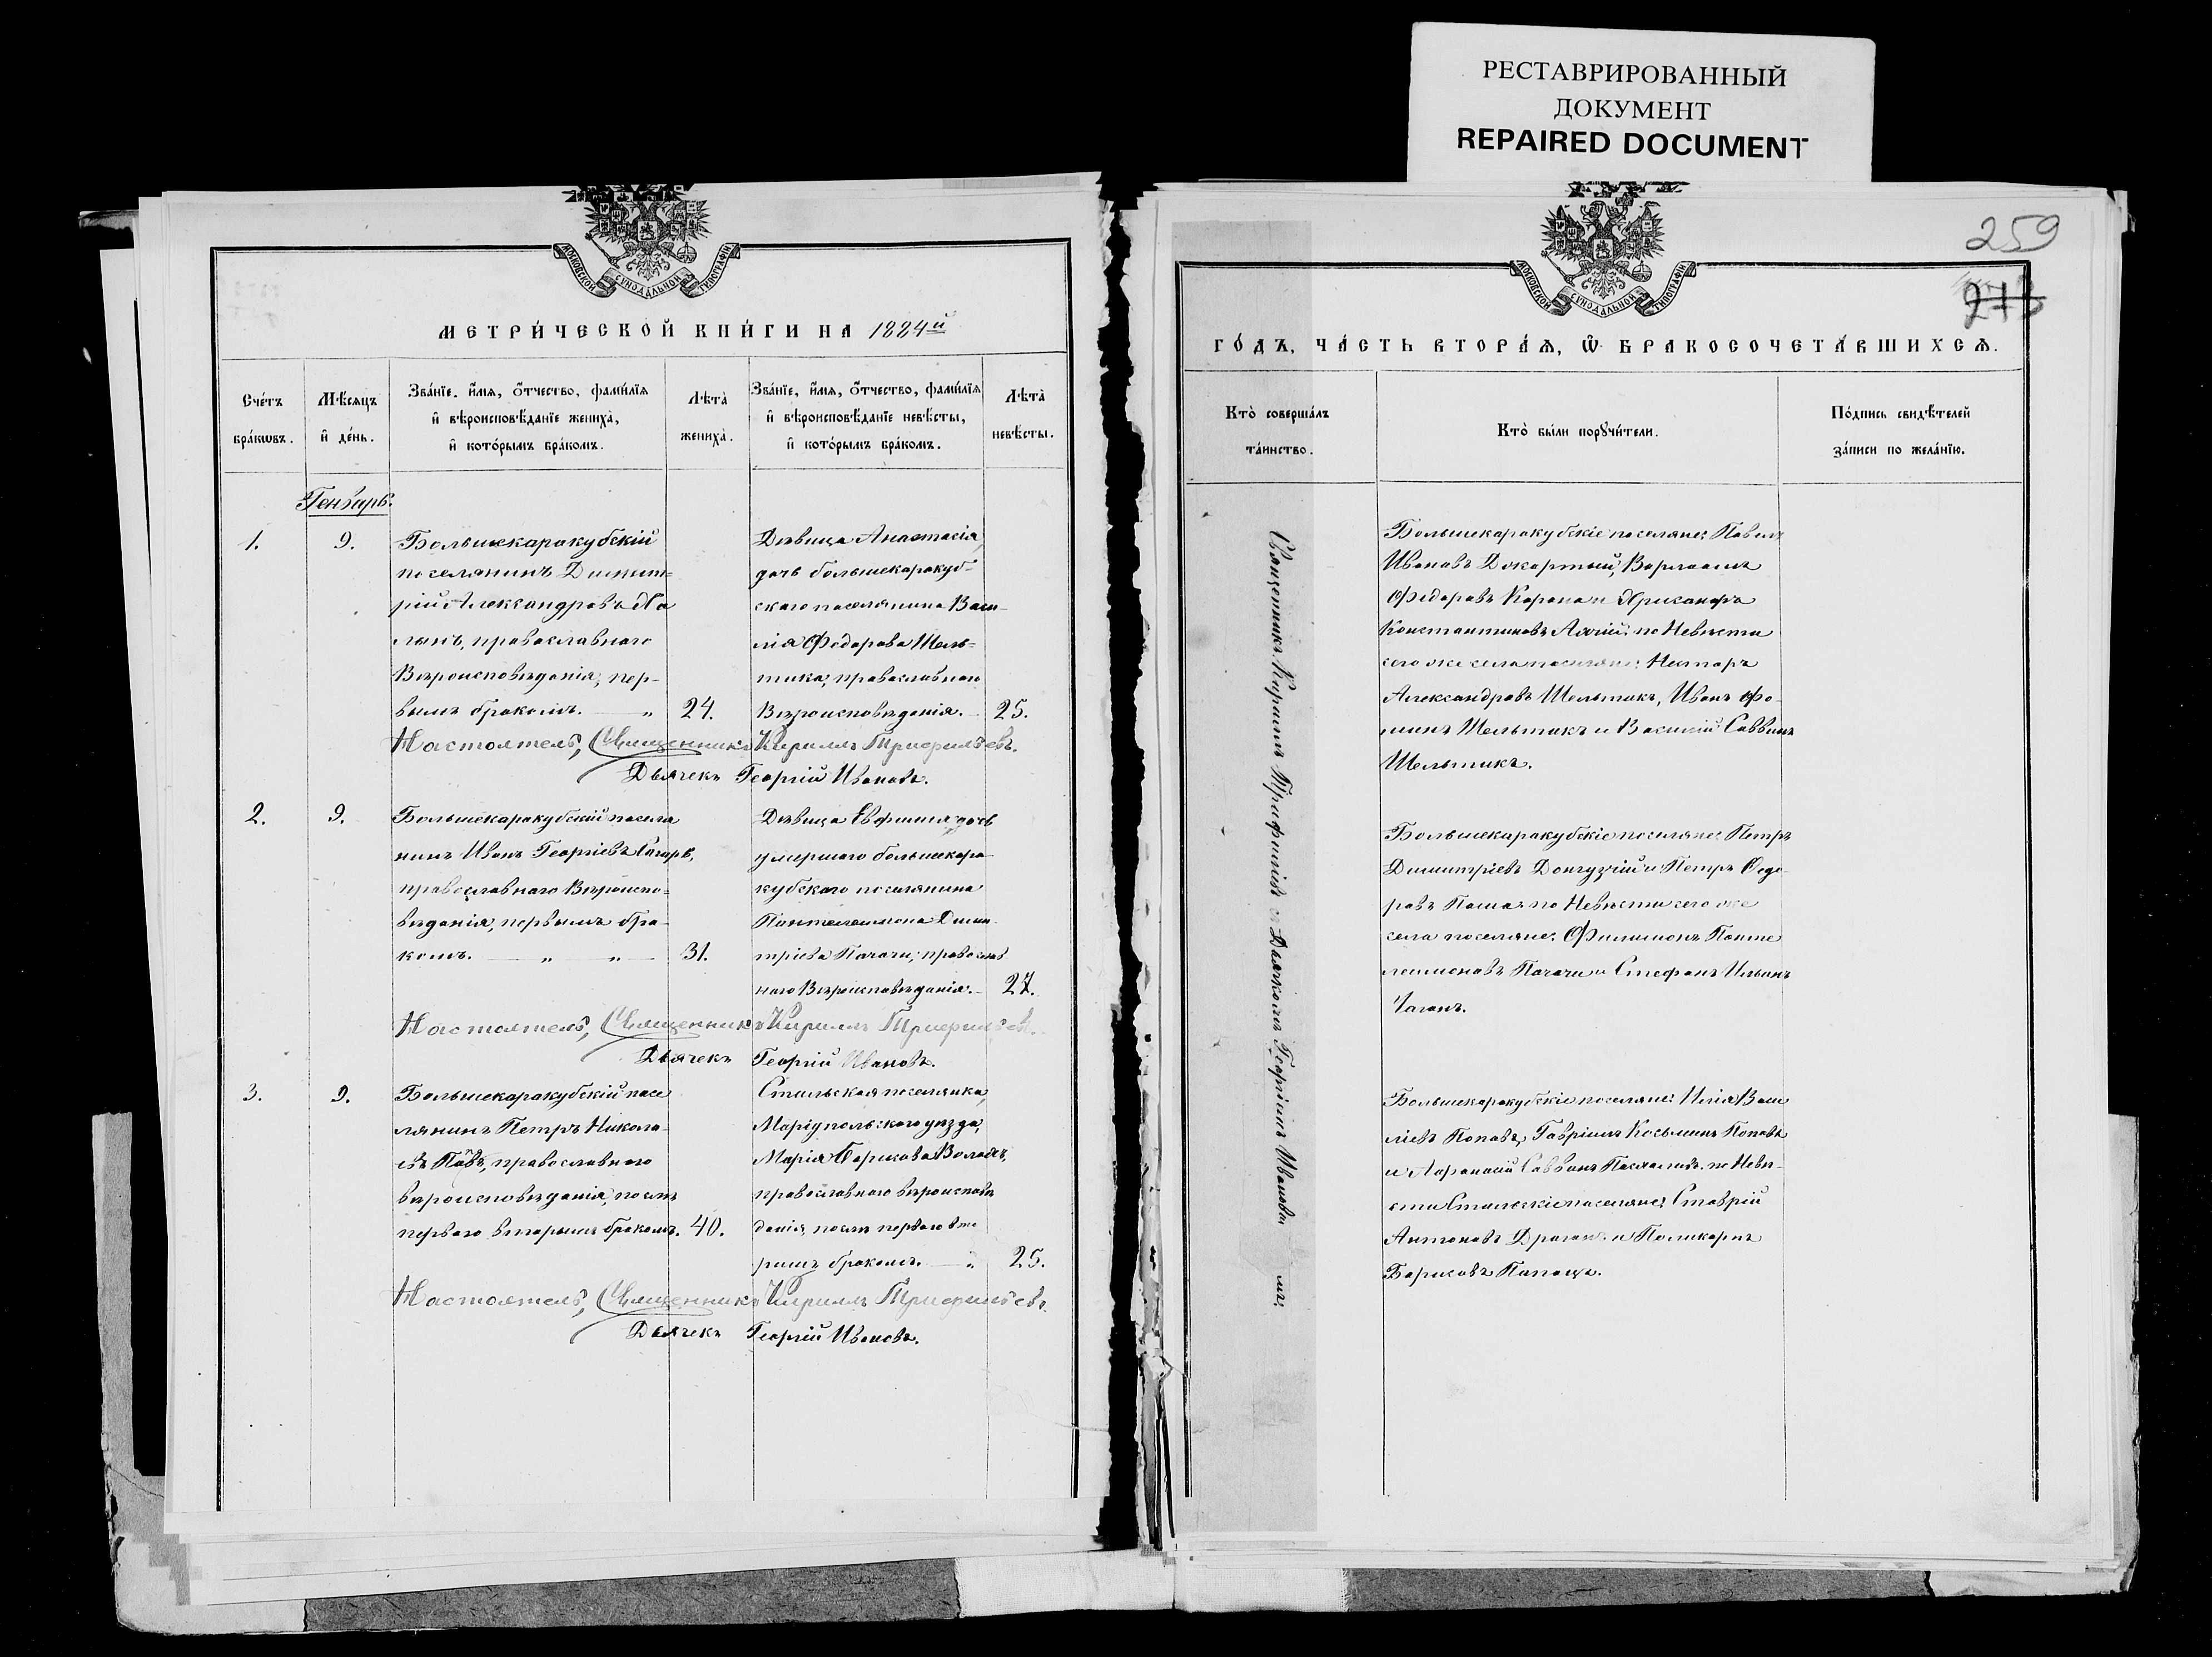 РЕСТАВРИРОВАННЫЙ
ДОКУМЕНТ
REPAIRED DOCUMENT
МОСКОВСКОЙ СѴНОДАЛЬНОЙ ТИПОГРАФІИ
МЕТРИ́ЧЕСКОЙ КНИ́ГИ НА 1884й
Сче́тъ бра́кωвъ.
Мѣ́сяцъ и҆ де́нь.
Зва́нїе, и҆́мя, ѻ҆́тчество, фами́лїя
и҆ вѣроисповѣ́данїе жениха̀,
и҆ кото́рымъ бра́комъ.
Лѣта̀ жениха̀.
Зва́нїе, и҆́мя, ѻ҆́тчество, фами́лїя
и҆ вѣроисповѣ́данїе невѣ́сты,
и҆ кото́рымъ бра́комъ.
Лѣта̀ невѣ́сты.
Генварь.
1.
9.
Большекаракубскій
поселянинъ Димит=
рій Александровъ Ха
лынъ, православнаго
Вѣроисповѣданія, пер-
вымъ бракомъ. — „
24.
Дѣвица Анастасія,
дочь большекаракуб-
скаго поселянина Васи-
лія Федорова Шель-
тика, православнаго
Вѣроисповѣданія. —
25.
Настоятель, Священникъ Кириллъ Трифилʹевъ.
Дьячекъ Георгій Ивановъ.
2.
9.
Большекаракубскій поселя
нинъ Иванъ Георгіевъ
православнаго Вѣроиспо-
вѣданія, первымъ бра-
комъ. — „ — „ —
31.
Дѣвица Евфимія дочь
умершаго большекара-
кубскаго поселянина
Пантелеимона Дими-
тріева Пачаги, православ
наго Вѣроисповѣданія. —
27.
Настоятель, Священникъ Кириллъ Трифилʹевъ.
Дьячекъ Георгій Ивановъ.
3.
9.
Большекаракубскій посе
лянинъ Петръ Никола-
евъ православнаго
вѣроисповѣданія, послѣ
перваго вторымъ бракомъ.
40.
Стыльская поселянка,
Маріупольскаго уѣзда,
Марія Борисова
православнаго вѣроисповѣ
данія, послѣ перваго вто
рымъ бракомъ. — „
25.
Настоятель, Священникъ Кириллъ Трифилʹевъ.
Дьячекъ Георгій Ивановъ.
259
273
МОСКОВСКОЙ СѴНОДАЛЬНОЙ ТИПОГРАФІИ
ГО́ДЪ, ЧА́СТЬ ВТОРА́Я, Ѽ БРАКОСОЧЕТА́ВШИХСЯ.
Кто̀ соверша́лъ та́инство.
Кто̀ бы́ли порꙋчи́тели.
По́дпись свидѣ́телей
за́писи по жела́нїю.
Священникъ Кириллъ Трифиліевъ съ Дьячкомъ Георгіемъ Ивановы мъ.
Большекаракубскіе поселяне: Павелъ
Ивановъ Варлаамъ
Федоровъ Корона и Хрисанфъ
Константиновъ по Невѣсти
сего же села поселяне: Несторъ
Александровъ Шельтикъ, Иванъ Фо-
минъ Шельтикъ и Василій Саввинъ
Шельтикъ.
Большекаракубскіе поселяне: Петръ
Димитріевъ Донгузгій и Петръ Федо-
ровъ Паша по Невѣсти сего же
села поселяне: Филимонъ Панте
леимоновъ Пачаги и Стефанъ Ильинъ
Чаганъ.
Большекаракубскіе поселяне: Илія Васи
ліевъ Поповъ, Гавріилъ Косьминъ Поповъ
и Афанасій Саввинъ по Невѣ-
сти Стыльскіе поселяне: Ставрій
Антоновъ Драган. и Поликарпъ
Борисовъ Папаца.